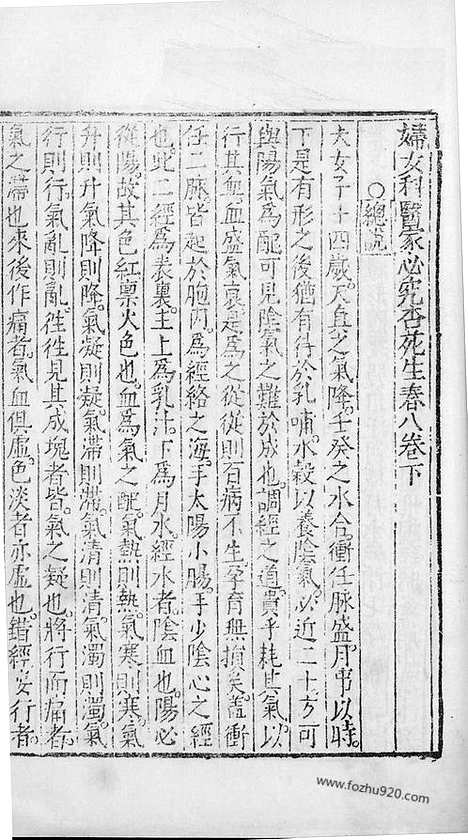 婦女科醫家必究杏苑生春八卷下
○總說
夫女子十四歲天真之氣降壬癸之水合衝任脉盛月事以時
下是有形之後猶有待於乳哺水穀以養陰氣必近二十方可
與陽氣爲配可見陰氣之難於成也調經之道貴乎耗其氣以
行其無血盛氣衰是爲之從從則百病不生孕育無損矣蓋衝
任二脉皆起於胞內爲經絡之海手太陽小腸手少陰心之經
也此二經爲表裏主上爲乳汁下爲月水經水者陰血也陽必
從陽故其色紅稟火色也血爲氣之配氣熱則熱氣寒則寒氣
升則升氣降則降氣凝則凝氣滯則滯氣清則清氣濁則濁氣
行則行氣亂則亂徃徃見其成塊者皆氣之凝也將行而痛者
氣之滯也來後作痛者氣血俱虛色淡者亦虛也錯經妄行者
www.fozhu920.com